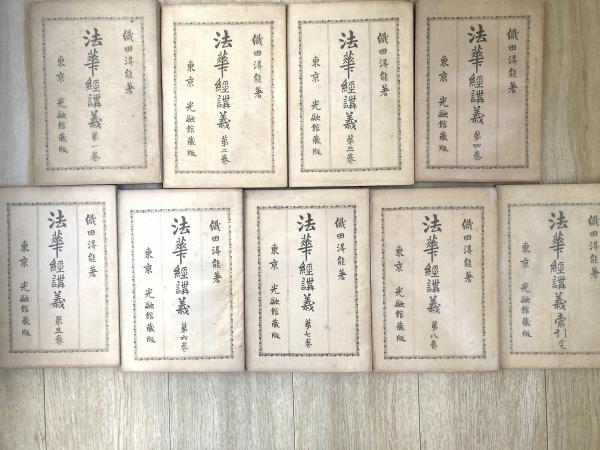 織田得能著
法華經講義 第一卷
東京 光融館藏版
織田得能著
法華經講義 第二卷
東京 光融館藏版
織田得能著
法華經講義 第三卷
東京 光融館藏版
織田得能著
法華經講義 第四卷
東京 光融館藏版
織田得能著
法華經講義 第五卷
東京 光融館藏版
織田得能著
法華經講義 第六卷
東京 光融館藏版
織田得能著
法華經講義 第七卷
東京 光融館藏版
織田得能著
法華經講義 第八卷
東京 光融館藏版
織田得能著
法華經講義 索引完
東京 光融館藏版